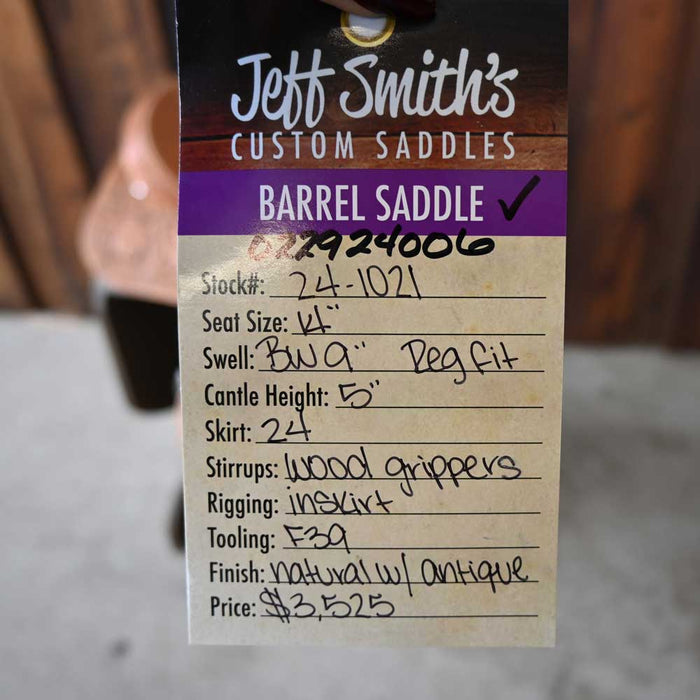 Jeff Smith's
CUSTOM SADDLES
BARREL SADDLE ✓
0229924006
Stock#: 24-1021
Seat Size: 14"
Swell: BW 9" Reg fit
Cantle Height: 5"
Skirt: 24
Stirrups: wood grippers
Rigging: inskirt
Tooling: F39
Finish: natural w/ antique
Price: $3,525